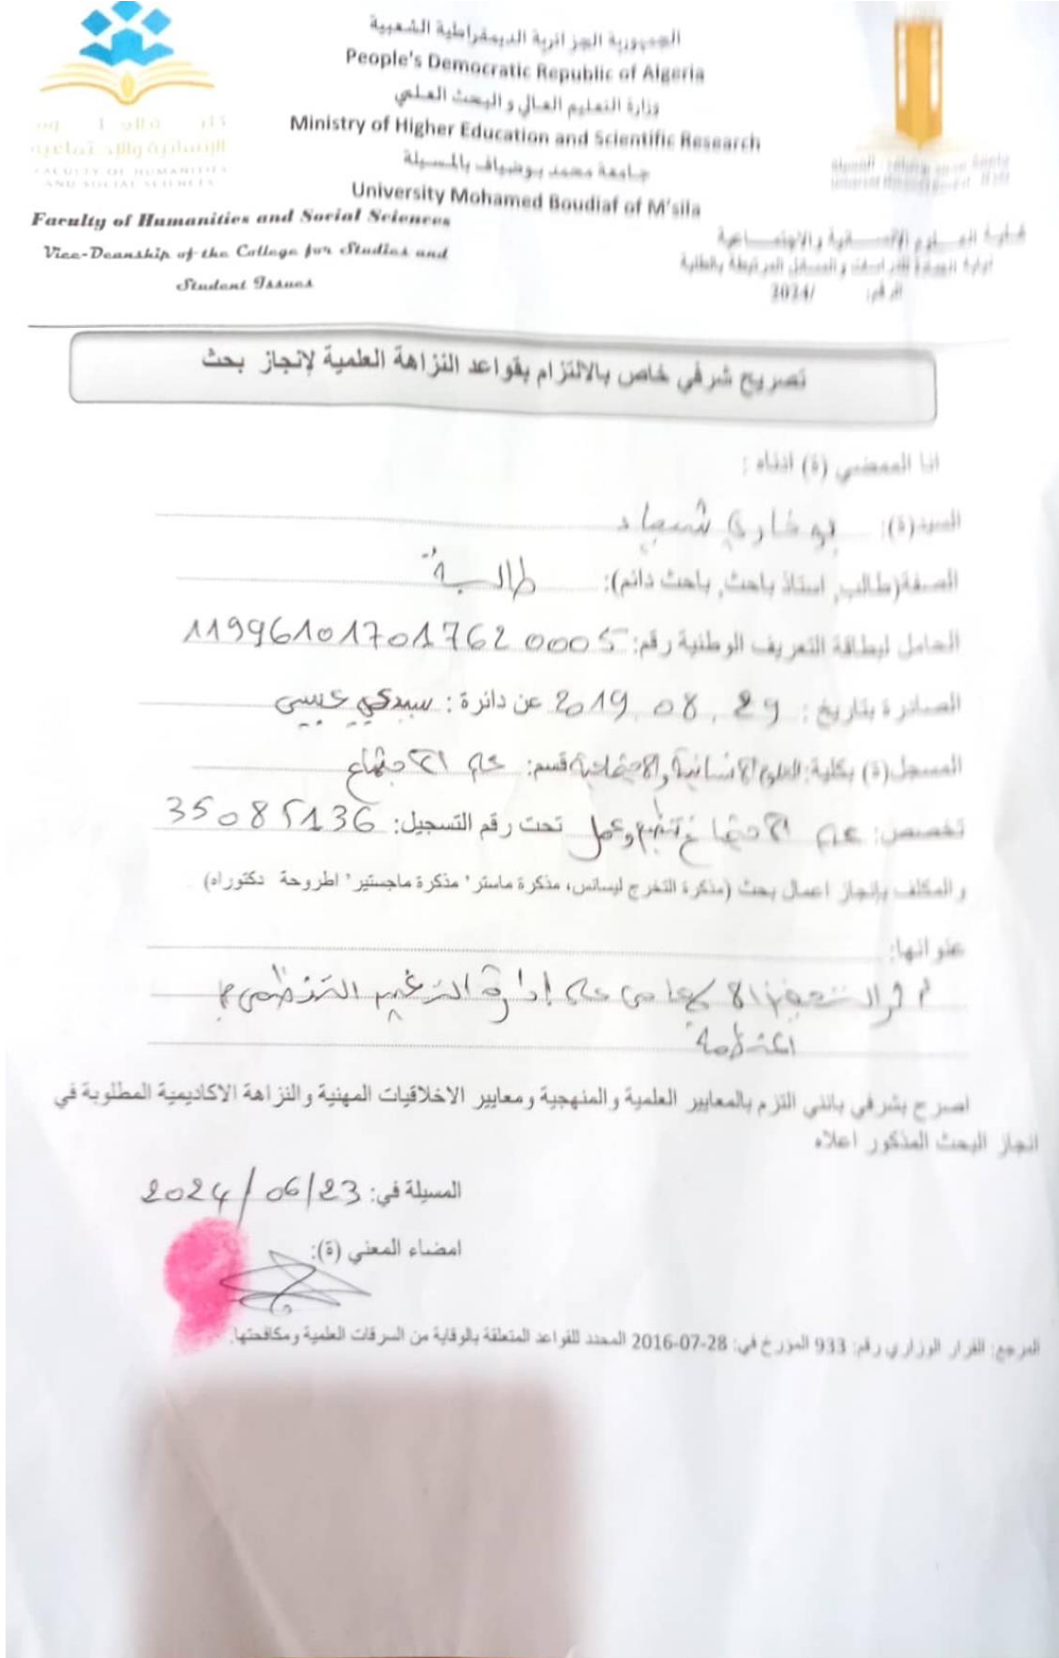 الجمهورية الجزائرية الديمقراطية الشعبية
People's Democratic Republic of Algeria
وزارة التعليم العالي والبحث العلمي
Ministry of Higher Education and Scientific Research
جامعة محمد بوضياف بالمسيلة
University Mohamed Boudiaf of M'sila
الإنسانية والاجتماعية
FACULTY OF HUMANITIES
AND SOCIAL SCIENCES
Faculty of Humanities and Social Sciences
Vice-Deanship of the College for Studies and
Student Issues
كلية العلوم الإنسانية والاجتماعية
نيابة العمادة للدراسات والمسائل المرتبطة بالطلبة
الرقم: /2024
تصريح شرفي خاص بالالتزام بقواعد النزاهة العلمية لإنجاز بحث
انا الممضي (ة) ادناه :
السيد(ة): بوخاري
الصفة(طالب, استاذ باحث, باحث دائم): طالبة
الحامل لبطاقة التعريف الوطنية رقم: 119961017017620005
الصادرة بتاريخ : 2019.08.29 عن دائرة : سيدي عيسى
المسجل(ة) بكلية: العلوم الانسانية والاجتماعية قسم: علم الاجتماع
تخصص: علم الاجتماع تنظيم وعمل تحت رقم التسجيل: 35085136
والمكلف بإنجاز اعمال بحث (مذكرة التخرج ليسانس، مذكرة ماستر' مذكرة ماجستير' اطروحة دكتوراه)
عنوانها:
إدارة التغيير التنظيمي
اصرح بشرفي بانني التزم بالمعايير العلمية والمنهجية ومعايير الاخلاقيات المهنية والنزاهة الاكاديمية المطلوبة في
انجاز البحث المذكور اعلاه
المسيلة في: 2024/06/23
امضاء المعني (ة):
المرجع: القرار الوزاري رقم: 933 المؤرخ في: 28-07-2016 المحدد للقواعد المتعلقة بالوقاية من السرقات العلمية ومكافحتها.